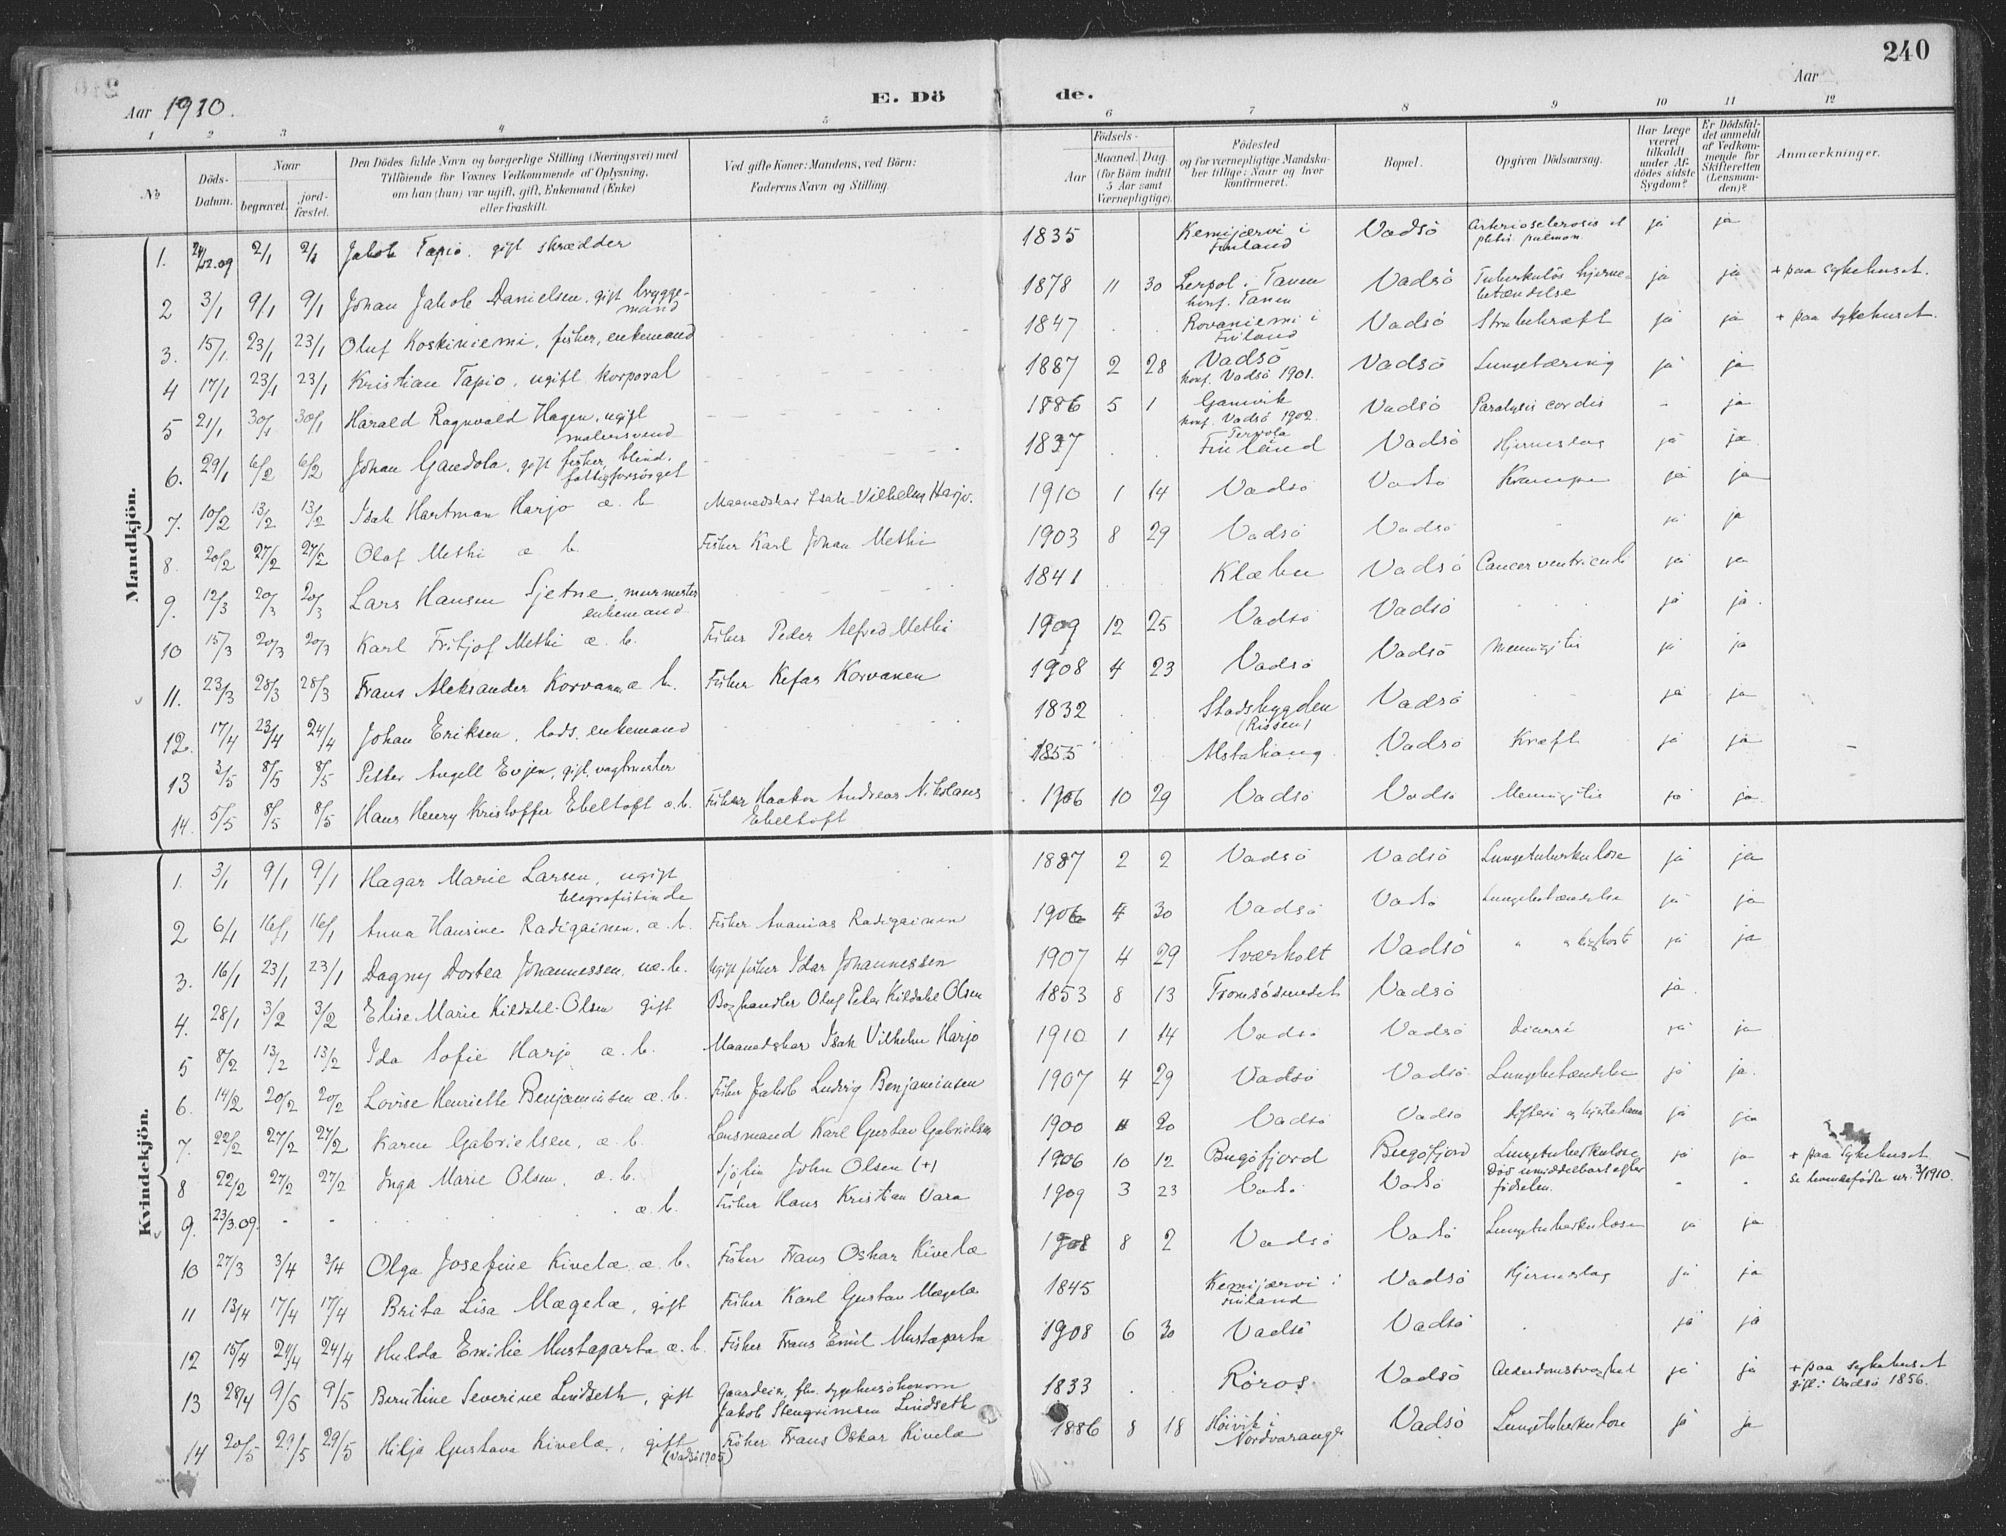 240
Aar 1910.
E. Dö de.
Aar
1 2 3 4 5 6 7 8 9 10 11 12
No
Döds-Datum.
Naar
begravet.
jord-fæstet.
Den Dödes fulde Navn og borgerlige Stilling (Næringsvei) med
Tilföiende for Voxnes Vedkommende af Oplysning,
om han (hun) var ugift, gift, Enkemand (Enke)
eller fraskilt.
Ved gifte Koner: Mandens, ved Börn:
Faderens Navn og Stilling.
Födsels-
Aar
Maaned. Dag.
(for Börn indtil
5 Aar samt
Værnepligtige).
Födested
og for værnepligtige Mandska-
ber tillige: Naar og hvor
konfirmeret.
Bopæl.
Opgiven Dödsaarsag.
Har Læge
været
tilkaldt
under Af-
dödes sidste
Sygdom?
Er Dödsfal-
det anmeldt
af Vedkom-
mende for
Skifteretten
(Lensman-
den)?
Anmærkninger.
Mandkjön.
1. 24/12.09 2/1 2/1 Jakob Tapio, gift skrædder 1835 Kemijærvi i Finland Vadsö Arteriosclerosis et ptisis pulmon. ja ja
2 3/1 9/1 9/1 Johan Jakob Danielsen, gift bryggemand 1878 11 30 Lerpol. Tanen konf. Tanen Vadsö Tuberkulös hjernebetændelse ja ja + paa sykehuset.
3. 15/1 23/1 23/1 Oluf Koskiniemi, fisker, enkemand 1847 Rovaniemi i Finland Vadsö Strubekræft ja ja + paa sykehuset.
4 17/1 23/1 23/1 Kristian Tapio, ugift korporal 1887 2 28 Vadsö konf. Vadsö 1901. Vadsö Lungetæring ja ja
5 21/1 30/1 30/1 Harald Ragnvald Hagen, ugift malersvend 1886 5 1 Gamvik konf. Vadsö 1902. Vadsö Paralysis cordis - ja
6. 29/1 6/2 6/2 Johan Gandola, gift fisker, blind, fattigforsörget 1837 Tervola Finland Vadsö Hjerneslag ja ja
7. 10/2 13/2 13/2 Isak Hartman Harjo æ. b Maanedskar Isak Vilhelm Harjo. 1910 1 14 Vadsö Vadsö Krampe ja ja
8. 20/2 27/2 27/2 Olaf Methi æ b. Fisker Karl Johan Methi 1903 8 29 Vadsö Vadsö ja ja
9. 12/3 20/3 20/3 Lars Hansen Sjetne, murmester enkemand 1841 Klæbu Vadsö Cancer ventriculi ja ja
10 15/3 20/3 20/3 Karl Fritjof Methi æ. b. Fisker Peder Alfred Methi 1909 12 25 Vadsö Vadsö ja ja.
11. 23/3 28/3 28/3 Frans Aleksander Korvanen æ b. Fisker Kefas Korvanen 1908 4 23 Vadsö Vadsö Meningitis ja ja
12. 17/4 23/4 24/4 Johan Eriksen, lods, enkemand 1832 Stadsbygden (Rissen) Vadsö ja ja
13 3/5 8/5 8/5 Petter Angell Evjen, gift, vagtmester 1855 Alstahaug Vadsö Kræft ja ja
14. 5/5 8/5 8/5 Hans Henry Kristoffer Ebeltoft æ. b. Fisker Haakon Andreas Nikolaus Ebeltoft 1906 10 29 Vadsö Vadsö Meningitis ja ja
Kvindekjön.
1. 3/1 9/1 9/1 Hagar Marie Larsen, ugift telegrafistinde 1887 2 2 Vadsö Vadsö Lungetuberkulose ja ja
2 6/1 16/1 16/1 Anna Hansine Radigainen, æ. b. Fisker Ananias Radigainen 1906 4 30 Vadsö Vadsö Lungebetændelse ja ja
3. 16/1 23/1 23/1 Dagny Dortea Johannessen, uæ. b. Ugift fisker Idar Johannessen 1907 4 29 Sværholt Vadsö " " kighoste ja ja
4. 28/1 3/2 3/2 Elise Marie Kildahl-Olsen gift Boghandler Oluf Peter Kildahl Olsen 1853 8 13 Tromsösundet Vadsö ja
5 8/2 13/2 13/2 Ida Sofie Harjo æ. b. Maanedskar Isak Vilhelm Harjo 1910 1 14 Vadsö Vadsö diarré ja ja
6. 14/2 20/2 20/2 Lovise Henriette Benjaminsen æ. b. Fisker Jakob Ludvig Benjaminsen 1907 4 29 Vadsö Vadsö Lungebetændelse ja ja.
7. 22/2 27/2 27/2 Karen Gabrielsen, æ. b. Lensmand Karl Gustav Gabrielsen 1900 11 20 Vadsö Vadsö difteri og hjertelam ja ja
8 22/2 27/2 27/2 Inga Marie Olsen, æ. b. Sjöfin John Olsen (+) 1906 10 12 Bugöfjord Bugöfjord Lungetuberkulose ja ja + paa sykehuset
9. 23/3.09. - - æ. b. Fisker Hans Kristian Vara 1909 3 23 Vadsö Vadsö Död umiddelbart efter födselen. - - se levendefødte nr. 3/1910.
10 27/3 3/4 3/4 Olga Josefine Kivelæ æ. b. Fisker Frans Oskar Kivelæ 1908 8 2 Vadsö Vadsö Lungetuberkulose ja ja
11 13/4 17/4 17/4 Brita Lisa Mægelæ, gift Fisker Karl Gustav Mægelæ 1845 Kemijærvi i Finland Vadsö Hjerneslag ja ja
12 15/4 24/4 24/4 Hulda Emilie Mustaparta æ. b. Fisker Frans Emil Mustaparta 1908 6 30 Vadsö Vadsö ja ja
13 28/4 9/5 9/5 Berntine Severine Lindseth, gift Gaardeier, fhv. sygehusökonom Jakob Stengrimsen Lindseth 1833 Röros. Vadsö Alderdomssvaghet ja ja + paa sykehuset gift i Vadsö 1856.
14 20/5 29/5 29/5 Hilja Gustava Kivelæ, gift (Vadsö 1905) Fisker Frans Oskar Kivelæ 1886 8 18 Höivik i Nordvaranger Vadsö Lungetuberkulose ja ja